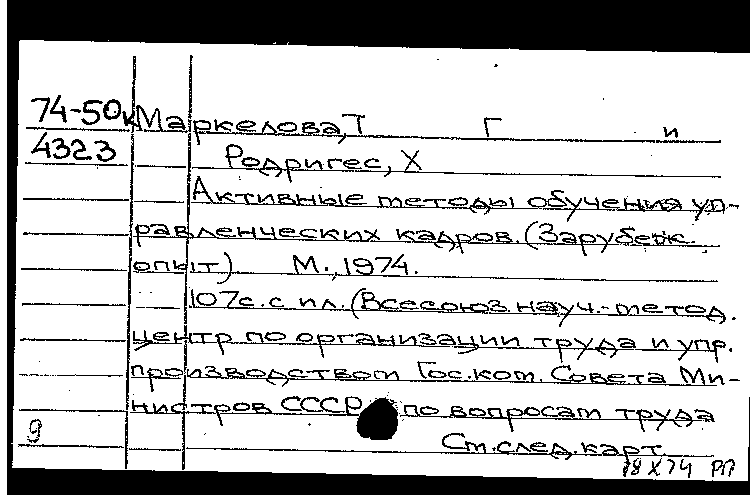 74-50к Маркелова, Т Г и
4323 Родригес, Х
Активные методы обучения уп-
равленческих кадров. (Зарубеж.
опыт) М., 1974.
107с. с ил. (Всесоюз. науч.-метод.
центр по организации труда и упр.
производством Гос. ком. Совета Ми-
нистров СССР по вопросам труда
9 См. след. карт.
18 X 74 РП